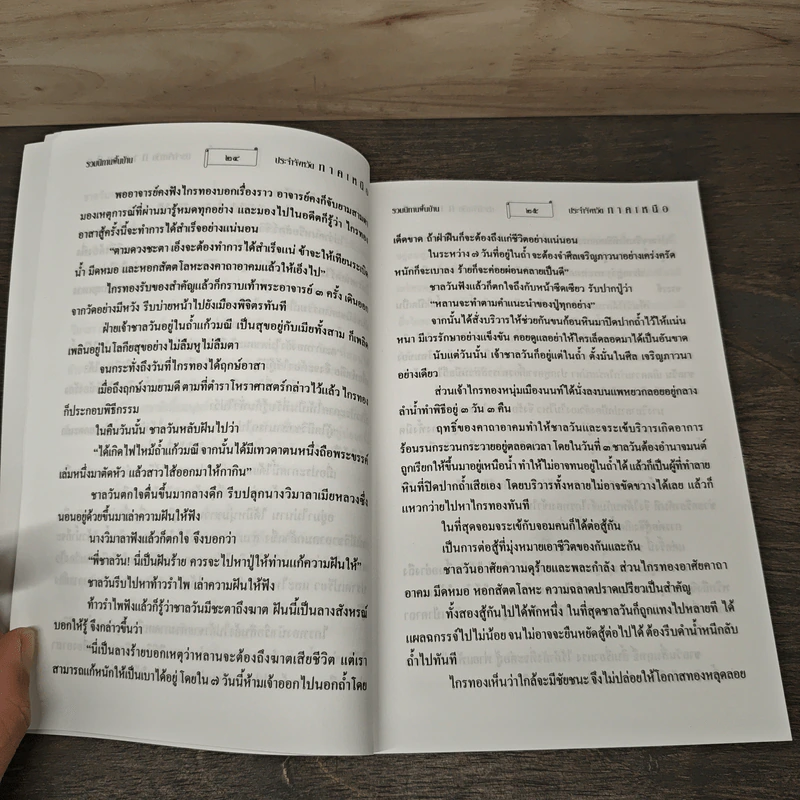 รวมนิทานพื้นบ้าน ๒๔ ประจำจังหวัด ภาคเหนือ
พออาจารย์คงฟังไกรทองบอกเรื่องราว อาจารย์คงก็จับยามสามตา
มองเหตุการณ์ที่ผ่านมารู้หมดทุกอย่าง และมองไปในอดีตก็รู้ว่า ไกรทอง
อาสาสู้ครั้งนี้จะทำการได้สำเร็จอย่างแน่นอน
“ตามดวงชะตา เอ็งจะต้องทำการได้สำเร็จแน่ ข้าจะให้เทียนระเบิด
น้ำ มีดหมอ และหอกสัตตโลหะลงคาถาอาคมแล้วให้เอ็งไป”
ไกรทองรับของสำคัญแล้วก็กราบเท้าพระอาจารย์ ๓ ครั้ง เดินออก
จากวัดอย่างมีหวัง รีบบ่ายหน้าไปยังเมืองพิจิตรทันที
ฝ่ายเจ้าชาลวันอยู่ในถ้ำแก้วมณี เป็นสุขอยู่กับเมียทั้งสาม ก็เพลิด
เพลินอยู่ในโลกียสุขอย่างไม่ลืมหูไม่ลืมตา
จนกระทั่งถึงวันที่ไกรทองได้ฤกษ์อาสา
เมื่อถึงฤกษ์งามยามดี ตามที่ตำราโหราศาสตร์กล่าวไว้แล้ว ไกรทอง
ก็ประกอบพิธีกรรม
ในคืนวันนั้น ชาลวันหลับฝันไปว่า
“ได้เกิดไฟไหม้ถ้ำแก้วมณี จากนั้นได้มีเทวดาตนหนึ่งถือพระขรรค์
เล่มหนึ่งมาตัดหัว แล้วสาวไส้ออกมาให้กากิน”
ชาลวันตกใจตื่นขึ้นมากลางดึก รีบปลุกนางวิมาลาเมียหลวงซึ่ง
นอนอยู่ด้วยขึ้นมาเล่าความฝันให้ฟัง
นางวิมาลาฟังแล้วก็ตกใจ จึงบอกว่า
“พี่ชาลวัน! นี่เป็นฝันร้าย ควรจะไปหาปู่ให้ท่านแก้ความฝันให้”
ชาลวันรีบไปหาท้าวรำไพ เล่าความฝันให้ฟัง
ท้าวรำไพฟังแล้วก็รู้ว่าชาลวันมีชะตาถึงฆาต ฝันนี้เป็นลางสังหรณ์
บอกให้รู้ จึงกล่าวขึ้นว่า
“นี่เป็นลางร้ายบอกเหตุว่าหลานจะต้องถึงฆาตเสียชีวิต แต่เรา
สามารถแก้หนักให้เป็นเบาได้อยู่ โดยใน ๗ วันนี้ห้ามเจ้าออกไปนอกถ้ำโดย
รวมนิทานพื้นบ้าน ๒๕ ประจำจังหวัด ภาคเหนือ
เด็ดขาด ถ้าฝ่าฝืนก็จะต้องถึงแก่ชีวิตอย่างแน่นอน
ในระหว่าง ๗ วันที่อยู่ในถ้ำ จะต้องจำศีลเจริญภาวนาอย่างเคร่งครัด
หนักก็จะเบาลง ร้ายก็จะค่อยผ่อนคลายเป็นดี”
ชาลวันฟังแล้วก็ตกใจถึงกับหน้าซีดเซียว รับปากปู่ว่า
“หลานจะทำตามคำแนะนำของปู่ทุกอย่าง”
จากนั้นได้สั่งบริวารให้ช่วยกันขนก้อนหินมาปิดปากถ้ำไว้ให้แน่น
หนา มีเวรรักษาอย่างแข็งขัน คอยดูแลอย่าให้ใครเล็ดลอดมาได้เป็นอันขาด
นับแต่วันนั้น เจ้าชาลวันก็อยู่แต่ในถ้ำ ตั้งมั่นในศีล เจริญภาวนา
อย่างเดียว
ส่วนเจ้าไกรทองหนุ่มเมืองนนท์ได้นั่งลงบนแพหยวกลอยอยู่กลาง
ลำน้ำทำพิธีอยู่ ๓ วัน ๓ คืน
ฤทธิ์ของคาถาอาคมทำให้ชาลวันและจระเข้บริวารเกิดอาการ
ร้อนรนกระวนกระวายอยู่ตลอดเวลา โดยในวันที่ ๓ ชาลวันต้องอำนาจมนต์
ถูกเรียกให้ขึ้นมาอยู่เหนือน้ำ ทำให้ไม่อาจทนอยู่ในถ้ำได้ แล้วก็เป็นผู้ที่ทำลาย
หินที่ปิดปากถ้ำเสียเอง โดยบริวารทั้งหลายไม่อาจขัดขวางได้เลย แล้วก็
แหวกว่ายไปหาไกรทองทันที
ในที่สุดจอมจระเข้กับจอมคนก็ได้ต่อสู้กัน
เป็นการต่อสู้ที่มุ่งหมายเอาชีวิตของกันและกัน
ชาลวันอาศัยความดุร้ายและพละกำลัง ส่วนไกรทองอาศัยคาถา
อาคม มีดหมอ หอกสัตตโลหะ ความฉลาดปราดเปรียวเป็นสำคัญ
ทั้งสองสู้กันไปได้พักหนึ่ง ในที่สุดชาลวันก็ถูกแทงไปหลายที ได้
แผลฉกรรจ์ไปไม่น้อย จนไม่อาจจะยืนหยัดสู้ต่อไปได้ ต้องรีบดำน้ำหนีกลับ
ถ้ำไปทันที
ไกรทองเห็นว่าใกล้จะมีชัยชนะ จึงไม่ปล่อยให้โอกาสทองหลุดลอย